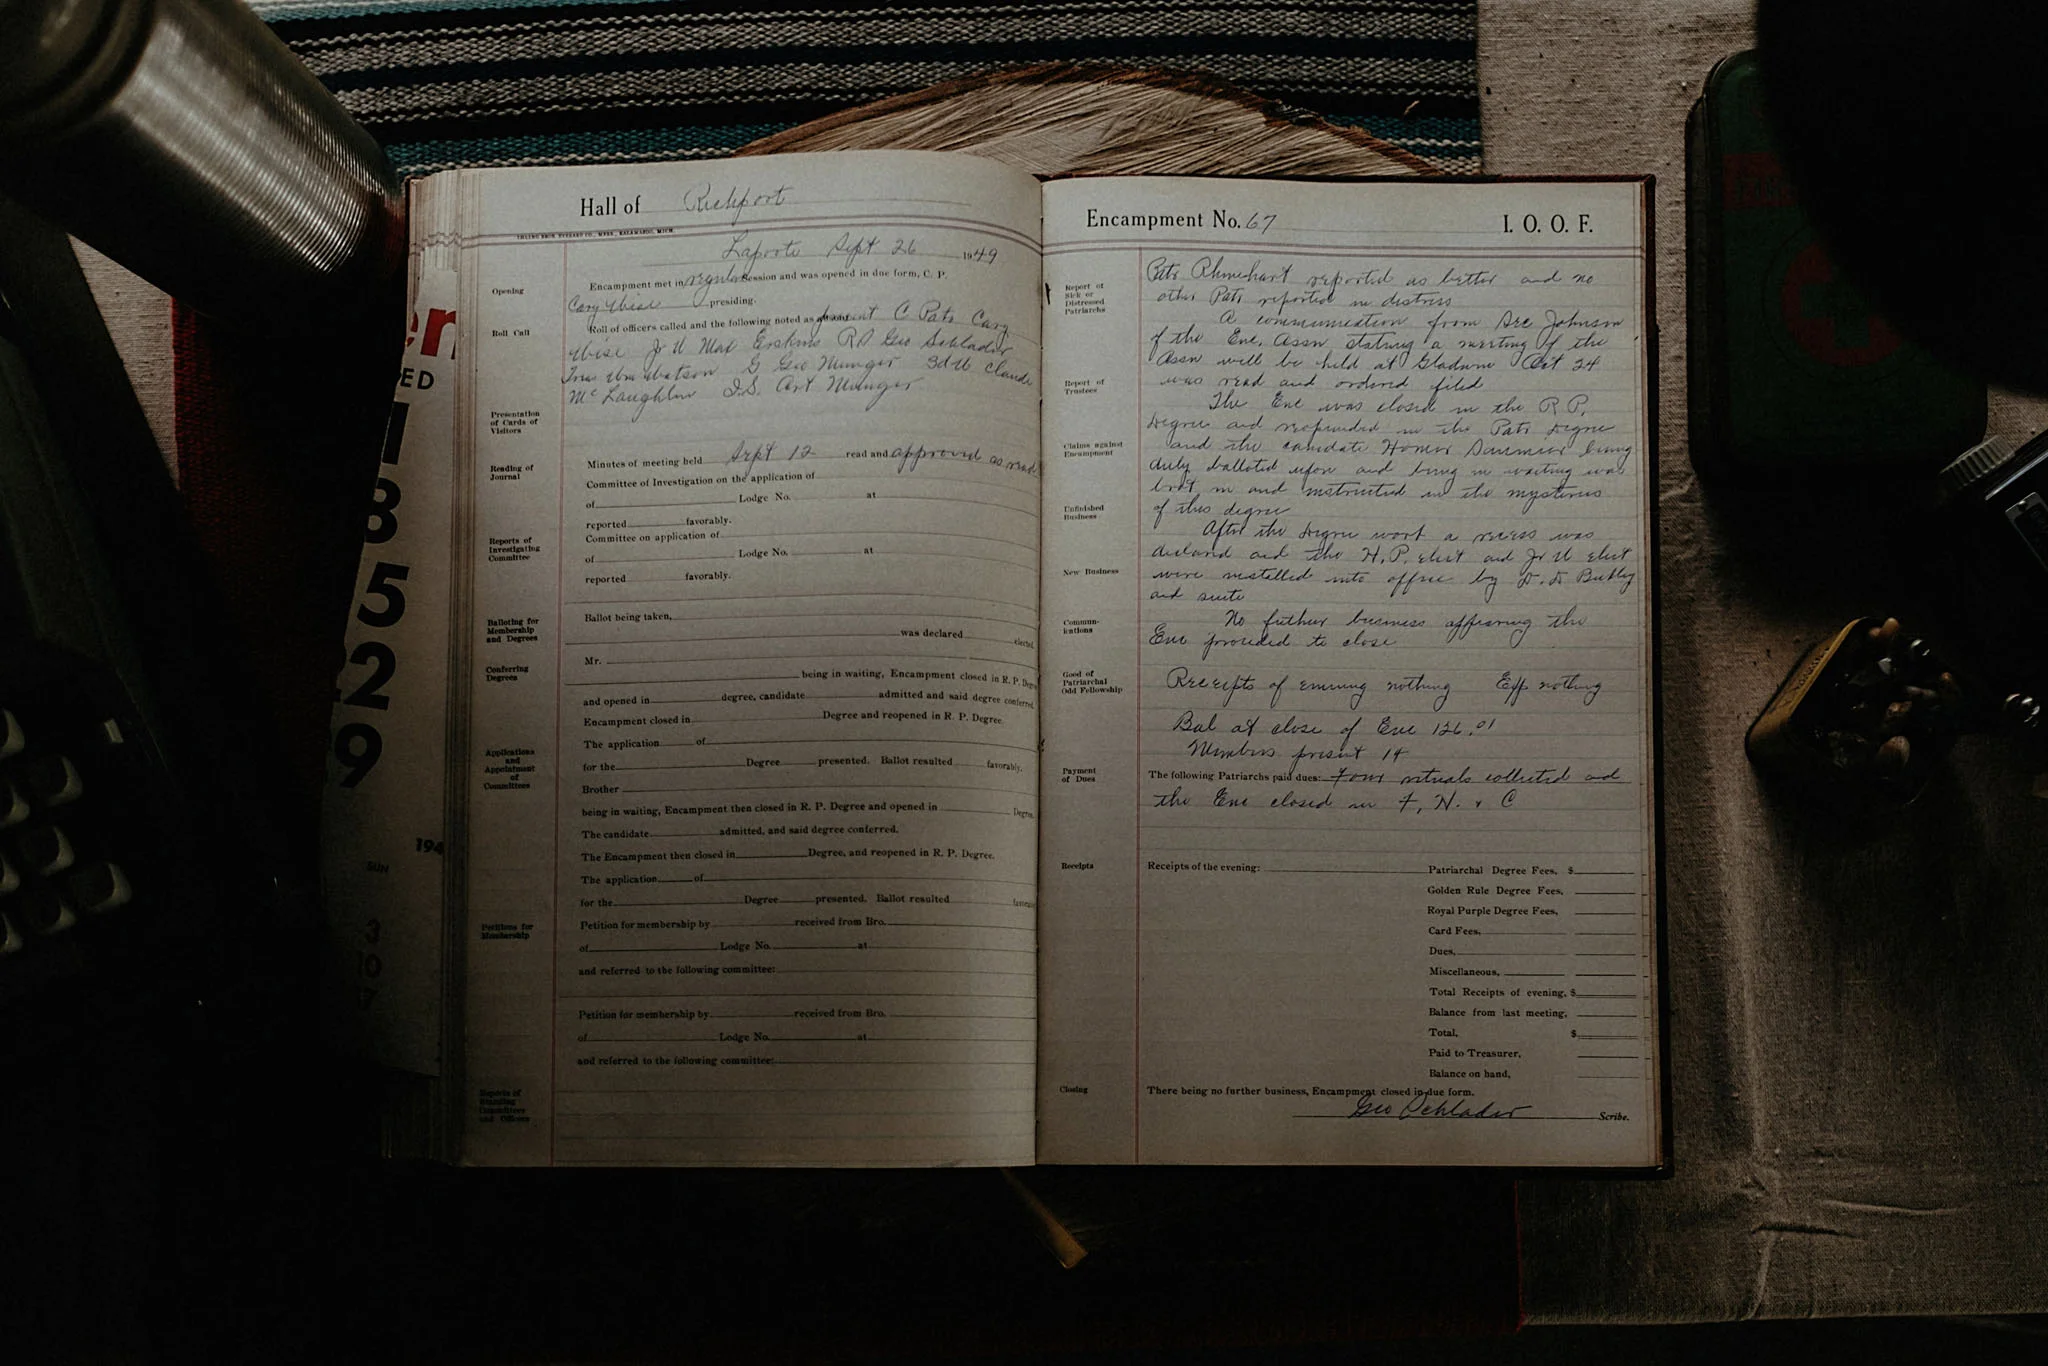 Hall of Richport
IHLING BROS. EVERARD CO., MFRS., KALAMAZOO, MICH.
Laporte Sept 26 1949
Opening
Encampment met in regular Session and was opened in due form, C. P.
Cary Wise presiding.
Roll Call
Roll of officers called and the following noted as present C Pats Cary
Wise Jr W Mal Erskins RS Geo Schlader
Wm Watson G Geo Munger 3d W Claude
McLaughlin I.S. Art Munger
Presentation
of Cards of
Visitors
Reading of
Journal
Minutes of meeting held Sept 12 read and approved as read
Committee of Investigation on the application of
of Lodge No. at
reported favorably.
Reports of
Investigating
Committee
Committee on application of
of Lodge No. at
reported favorably.
Balloting for
Membership
and Degrees
Ballot being taken,
was declared elected.
Conferring
Degrees
Mr.
being in waiting, Encampment closed in R. P. Degree
and opened in degree, candidate admitted and said degree conferred.
Encampment closed in Degree and reopened in R. P. Degree.
Applications
and
Appointment
of
Committees
The application of
for the Degree presented. Ballot resulted favorably.
Brother
being in waiting, Encampment then closed in R. P. Degree and opened in Degree.
The candidate admitted, and said degree conferred.
The Encampment then closed in Degree, and reopened in R. P. Degree.
The application of
for the Degree presented. Ballot resulted
Petitions for
Membership
Petition for membership by received from Bro.
of Lodge No. at
and referred to the following committee:
Petition for membership by received from Bro.
of Lodge No. at
and referred to the following committee:
Reports of
Standing
Committees
and Officers
Encampment No. 67 I. O. O. F.
Report of
Sick or
Distressed
Patriarchs
Pats Rhinehart reported as better and no
other Pats reported in distress
A communication from Sec Johnson
of the Enc. Assn stating a meeting of the
Assn will be held at Gladwin Oct 24
was read and ordered filed
Report of
Trustees
The Enc was closed in the R P.
Degree and reopended in the Pats Degree
Claims against
Encampment
and the canidate Homer being
duly balloted upon and being in waiting was
brot in and instructed in the mysteries
of this degree
Unfinished
Business
After the Degree work a recess was
declared and the H. P. elect and Jr W elect
New Business
were installed into office by D. D
and suite
Commun-
ications
No futher business appearing the
Enc proceded to close
Good of
Patriarchal
Odd Fellowship
Receipts of evening nothing Exp nothing
Bal at close of Enc 126.01
Members present 14
Payment
of Dues
The following Patriarchs paid dues: Four rituals collected and
the Enc closed in F, H. & C
Receipts
Receipts of the evening: Patriarchal Degree Fees, $
Golden Rule Degree Fees,
Royal Purple Degree Fees,
Card Fees,
Dues,
Miscellaneous,
Total Receipts of evening, $
Balance from last meeting,
Total, $
Paid to Treasurer,
Balance on hand,
Closing
There being no further business, Encampment closed in due form.
Geo Schlader Scribe.
en
ED
1
8
5
2
9
194
SUN
3
10